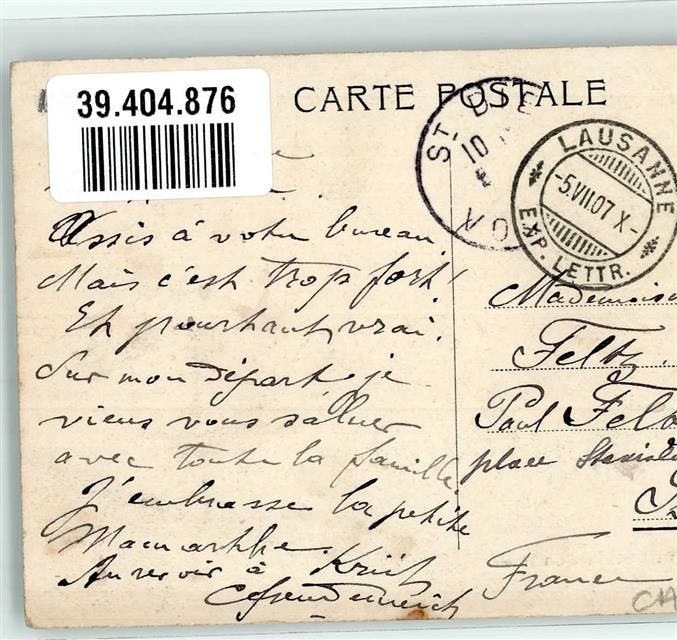 39.404.876
CARTE POSTALE
ST. DIÉ
10
LAUSANNE
-5.VII.07 X-
EXP. LETTR.
Assis à votre bureau
Mais c'est trop fort!
Et pourtant, vrai.
Sur mon départ, je
viens vous saluer
avec toute la famille.
J'embrasse la petite
Au revoir à
Mademoise
Feltz
Paul Felt
place Stanisla
France